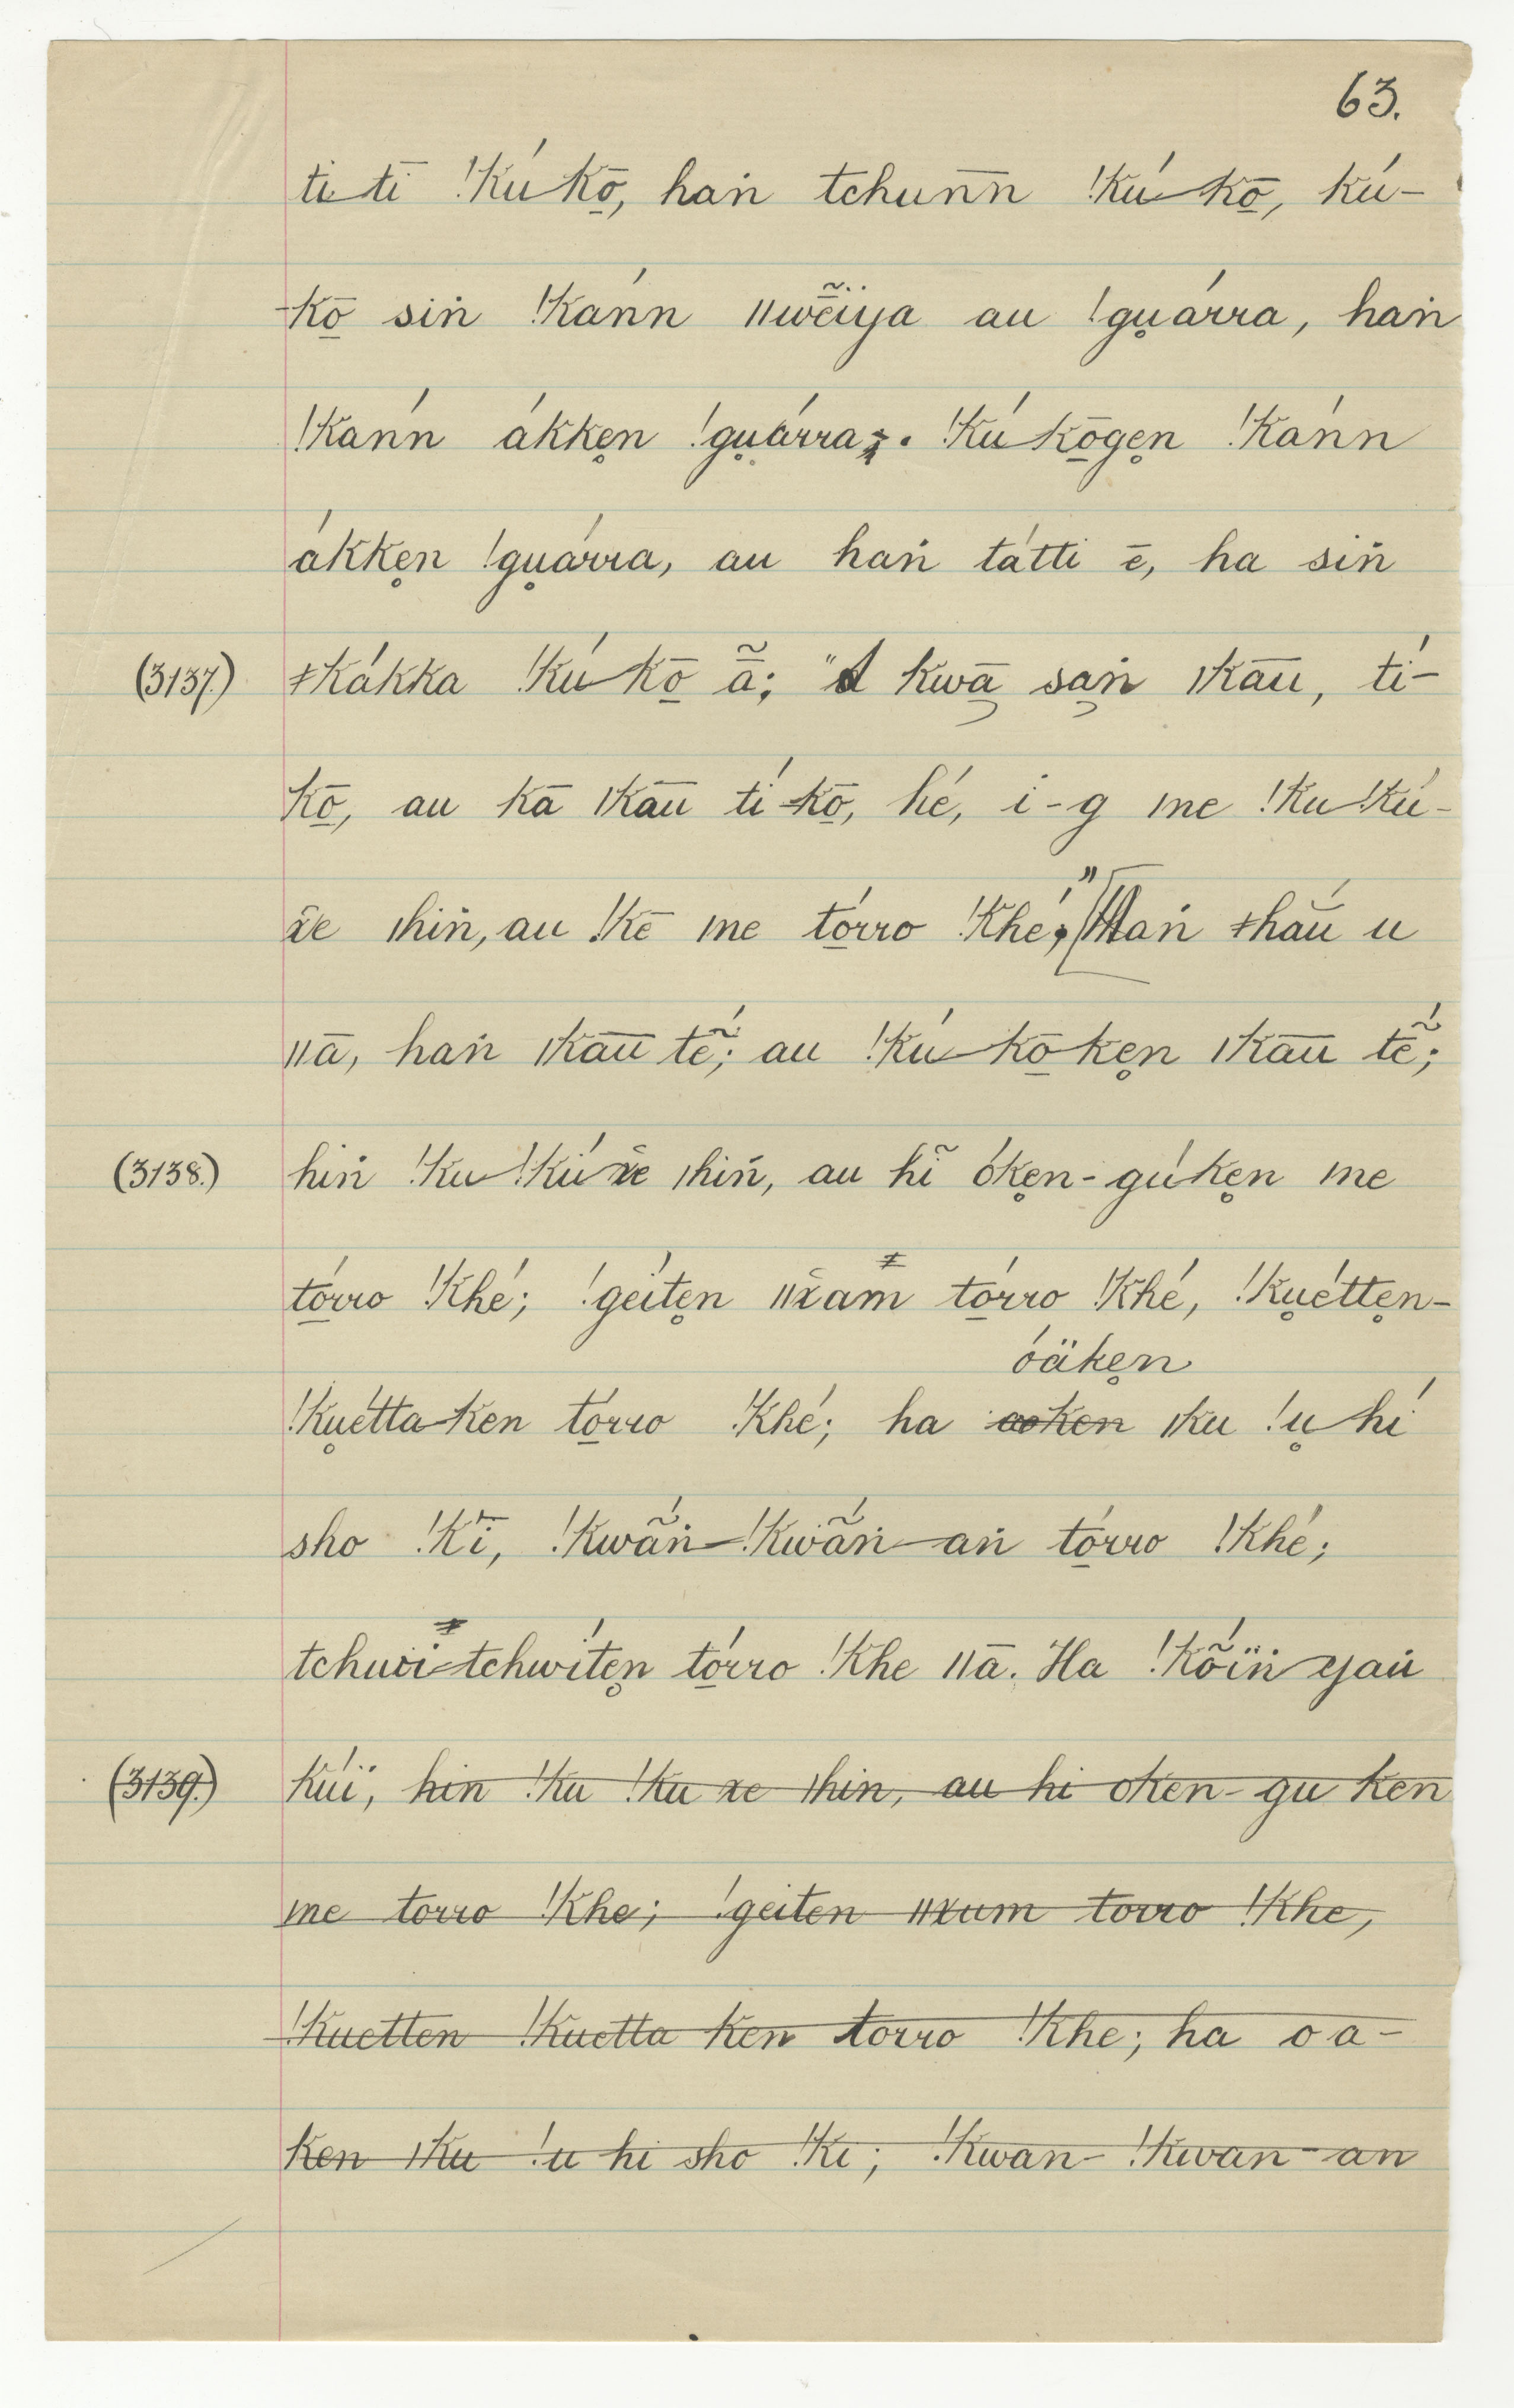 63.
tı ti !kú kō̲, haṅ tchun̄n !kú-kō̲, kú-
-kō̲ siṅ !kánn ǁwẽ̄ïya au !gu̥árra, haṅ
!kánn ákke̥n !gu̥árra. !kú kō̲ge̥n !kánn
ákke̥n !gu̥árra, au haṅ tátti ē, ha siṅ
(3137.) ǂkákka !kú kō̲ ã̄; "A kwā̰ sa̰ṅ ǀkāū, ti-
kō̲, au kā ǀkāū ti-kō̲, hé, i-g ǀne !ku !kú-
x̆e ǀhiṅ, au !kē ǀne tó̲rro !khé," [Haṅ ǂhắŭ u
ǁā, haṅ ǀkāū tẽ́; au !kú-kō̲-ke̥n ǀkāū tẽ́;
(3138.) hiṅ !ku !kúx̆e ǀhiṅ, au hĭ̃ óke̥n-gúke̥n ǀne
tó̲rro !khé; !géite̥n ǁx̆am̄ tó̲rro !khé, !ku̥étte̥n-
óäke̥n
!ku̥étta-ken tó̲rro !khé; ha ~~aoken~~ ǀku !u̥ hí
sho !kī, !kwã́ṅ-!kwã́ṅ-aṅ tó̲rro !khé;
tchwi-tchwíte̥n tó̲rro !khe ǁā. Ha !kṍïṅ yaú
(3139.) kúï, ~~hin !ku !ku xe ǀhin, au hi oken-gu ken~~
~~ǀne torro !khe; !geiten ǁxum torro !khe,~~
~~!kuetten !kuetta ken torro !khe; ha o a-~~
~~ken ǀku !u hi sho !ki; !kwan-!kwan-an~~